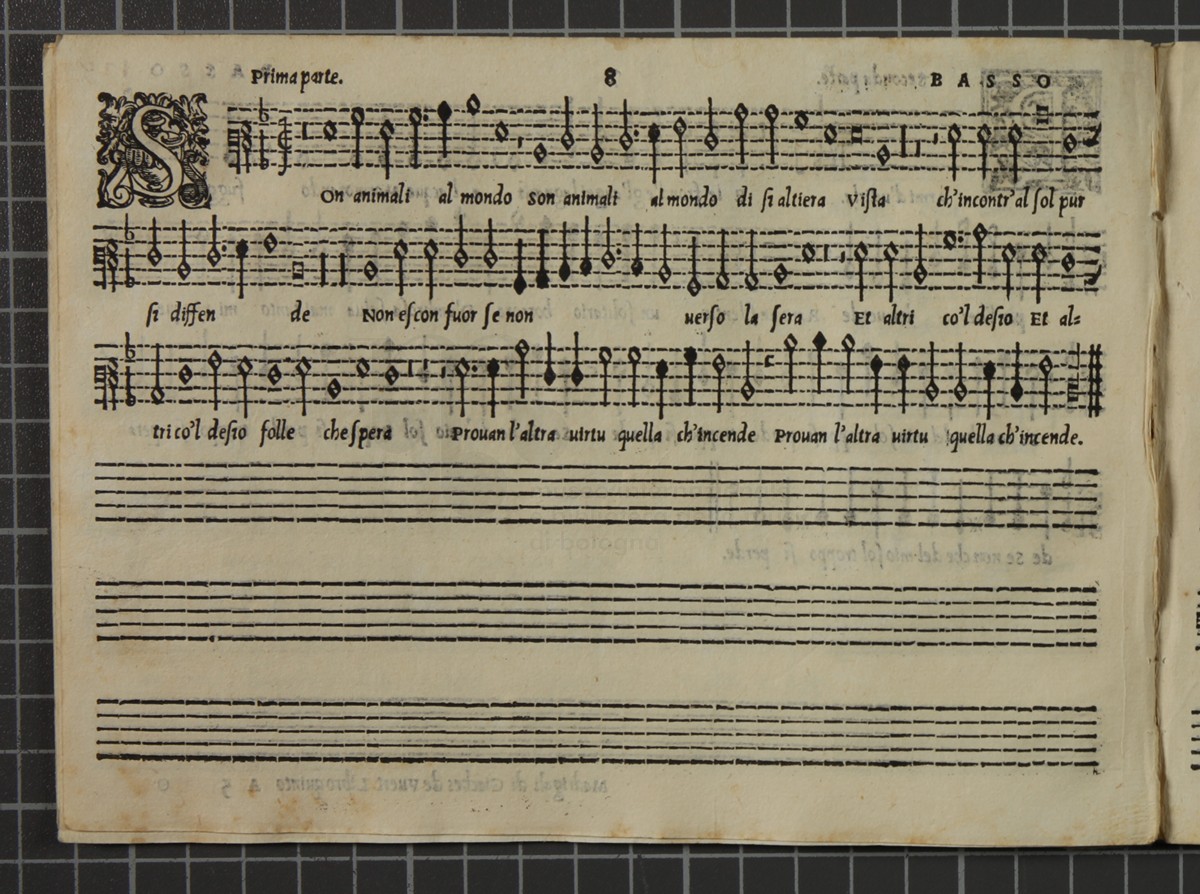 Prima parte. 8 BASSO
SOn animali al mondo son animali al mondo di si altiera vista ch'incontr'al sol pur
si diffen de Non escon fuor se non uerso la sera Et altri co'l desio Et al=
tri co'l desio folle che spera Prouan l'altra uirtu quella ch'incende Prouan l'altra uirtu quella ch'incende.